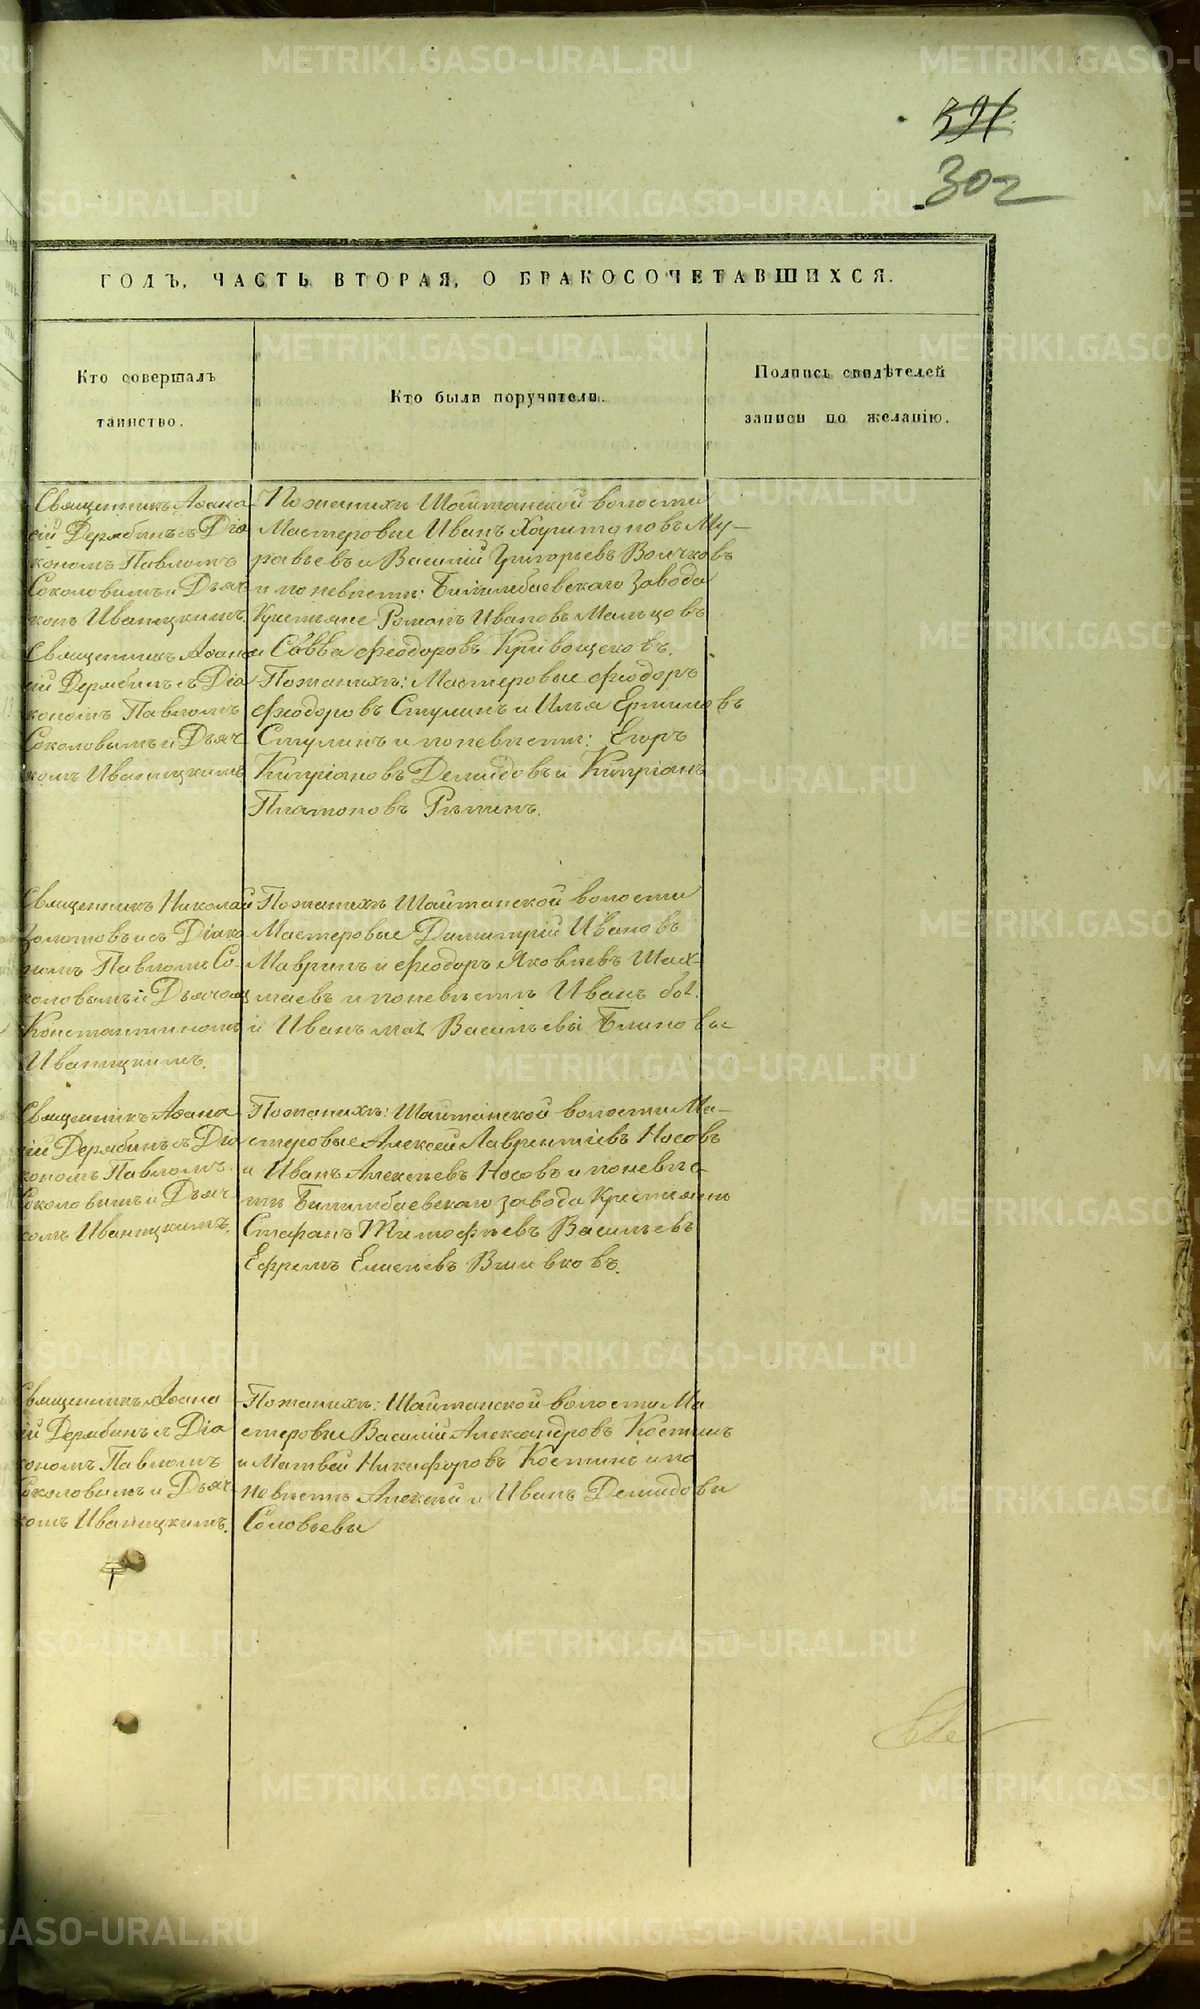 302
ГОДЪ, ЧАСТЬ ВТОРАЯ, О БРАКОСОЧЕТАВШИХСЯ.
Кто совершалъ
таинство.
Кто были поручители.
Подпись свидѣтелей
записи по желанію.
Священникъ Аѳана
сій Дерябинъ съ Діа
кономъ Павломъ
Соколовымъ и Дьяч
комъ Иваницкимъ.
Пожанихѣ Шайтанской волости
Мастеровые Иванъ Харитоновъ Му-
равьевъ и Василій Григорьевъ Волчковъ
и по невѣсти: Билимбаевскаго Завода
Крестьяне Романъ Ивановъ Мальцовъ
и Савва Ѳеодоровъ Кривощековъ.
Священникъ Аѳана
сій Дерябинъ съ Діа
кономъ Павломъ
Соколовымъ и Дьяч
комъ Иваницкимъ
Пожанихѣ: Мастеровые Ѳеодоръ
Ѳеодоровъ Стулинъ и Илья Ермиловъ
Стулинъ и поневѣсти: Егоръ
Кипріановъ Демидовъ и Кипріанъ
Платоновъ
Священникъ Николай
Золотовъ и съ Діако
номъ Павломъ Со-
коловымъ и Дьячком
Константиномъ
Иваницкимъ.
Пожанихѣ Шайтанской волости
Мастеровые Димитрій Ивановъ
Мавринъ и Ѳеодоръ Яковлевъ Шах-
маевъ и поневѣстѣ Иванъ бол.
и Иванъ мал Васильевы Блиновы
Священникъ Аѳана
сій Дерябинъ съ Діа
кономъ Павломъ
Соколовымъ и Дьяч
комъ Иваницкимъ.
Пожанихѣ: Шайтанской волости Ма-
стеровые Алексей Лаврентіевъ Носовъ
и Иванъ Алексѣевъ Носовъ и поневѣс
тѣ Билимбаевскаго завода Крестьяне
Стефанъ Тимофѣевъ Васильевъ
Ефремъ Елисѣевъ Вшивковъ.
Священникъ Аѳана
сій Дерябинъ съ Діа
кономъ Павломъ
Соколовымъ и Дьяч
комъ Иваницкимъ.
Пожанихѣ: Шайтанской волости Ма
стеровые Василій Александровъ Костинъ
и Матвей Никифоровъ Костинъ и по
невѣстѣ Алексѣй и Иванъ Демидовы
Соловьевы
METRIKI.GASO-URAL.RU